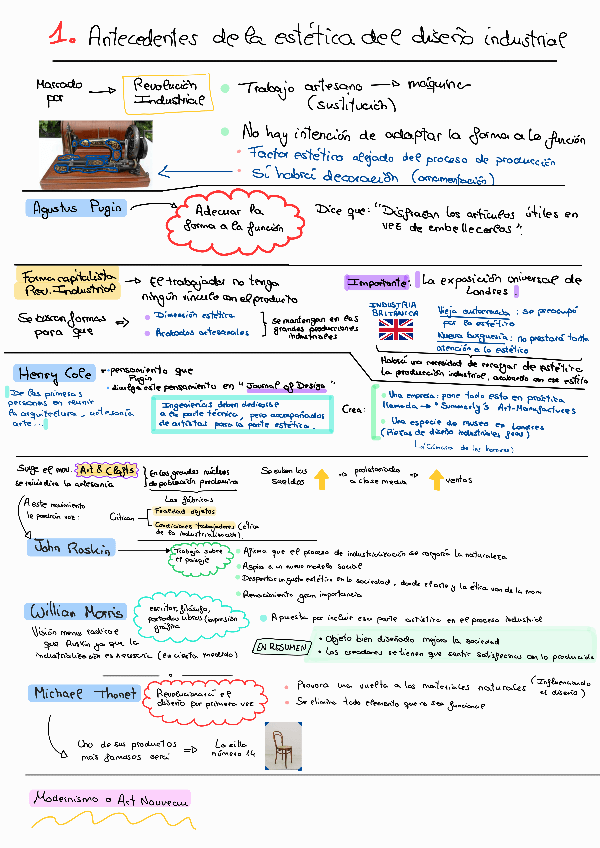 1. Antecedentes de la estética del diseño industrial
Marcado por → Revolución Industrial
Trabajo artesano → máquina (sustitución)
No hay intención de adaptar la forma a la función
Factor estético alejado del proceso de producción
Sí habrá decoración (ornamentación)
Agustus Pugin
Adecuar la forma a la función
Dice que: "Disfrazan los artículos útiles en vez de embellecerlos".
Forma capitalista Rev. Industrial → El trabajador no tenga ningún vínculo con el producto
Se buscan formas para que ⇒
Dimensión estética
Acabados artesanales
se mantengan en las grandes producciones industriales
Importante: La exposición universal de Londres!
INDUSTRIA BRITÁNICA
Vieja autocracia: se preocupó por la estética
Nueva burguesía: no prestará tanta atención a lo estético
Habrá una necesidad de recargar de estética la producción industrial, acabando con ese estilo
Henry Cole
pensamiento que Pugin
divulga este pensamiento en "Journal of Design"
De las primeras personas en reunir la arquitectura, artesanía arte...
Ingenierías deben dedicarse a la parte técnica, pero acompañados de artistas para la parte estética.
Crea:
Una empresa: pone todo esto en práctica llamada → Summerly's Art-Manufactures
Una especie de museo en Londres (Piezas de diseño industriales feas)
"Cámara de los horrores"
Surge el mov. Art & Crafts
se reivindica la artesanía
En los grandes núcleos de población proletaria
Se suben los sueldos
proletariado a clase media
ventas
A este movimiento le pondrán voz:
Critican
Las fábricas
Fealdad objetos
Condiciones trabajadores (ética de la industrialización).
John Ruskin
Trabaja sobre el paisaje
Afirma que el proceso de industrialización se cargaría la naturaleza
Aspira a un nuevo modelo social
Despertar un gusto estético en la sociedad, donde el arte y la ética van de la mano
Renacimiento gran importancia
Willian Morris
escritor, filósofo, portadas libros (expresión gráfica)
Apuesta por incluir esa parte artística en el proceso industrial
Visión menos radical que Ruskin ya que la industrialización es necesaria (en cierta medida)
EN RESUMEN
Objeto bien diseñado mejora la sociedad
Los creadores se tienen que sentir satisfechos con lo producido
Michael Thonet
Revolucionará el diseño por primera vez
Provoca una vuelta a los materiales naturales (Influenciando el diseño)
Se elimina todo elemento que no sea funcional
Uno de sus productos más famosos será ⇒ La silla número 14
Modernismo o Art Nouveau